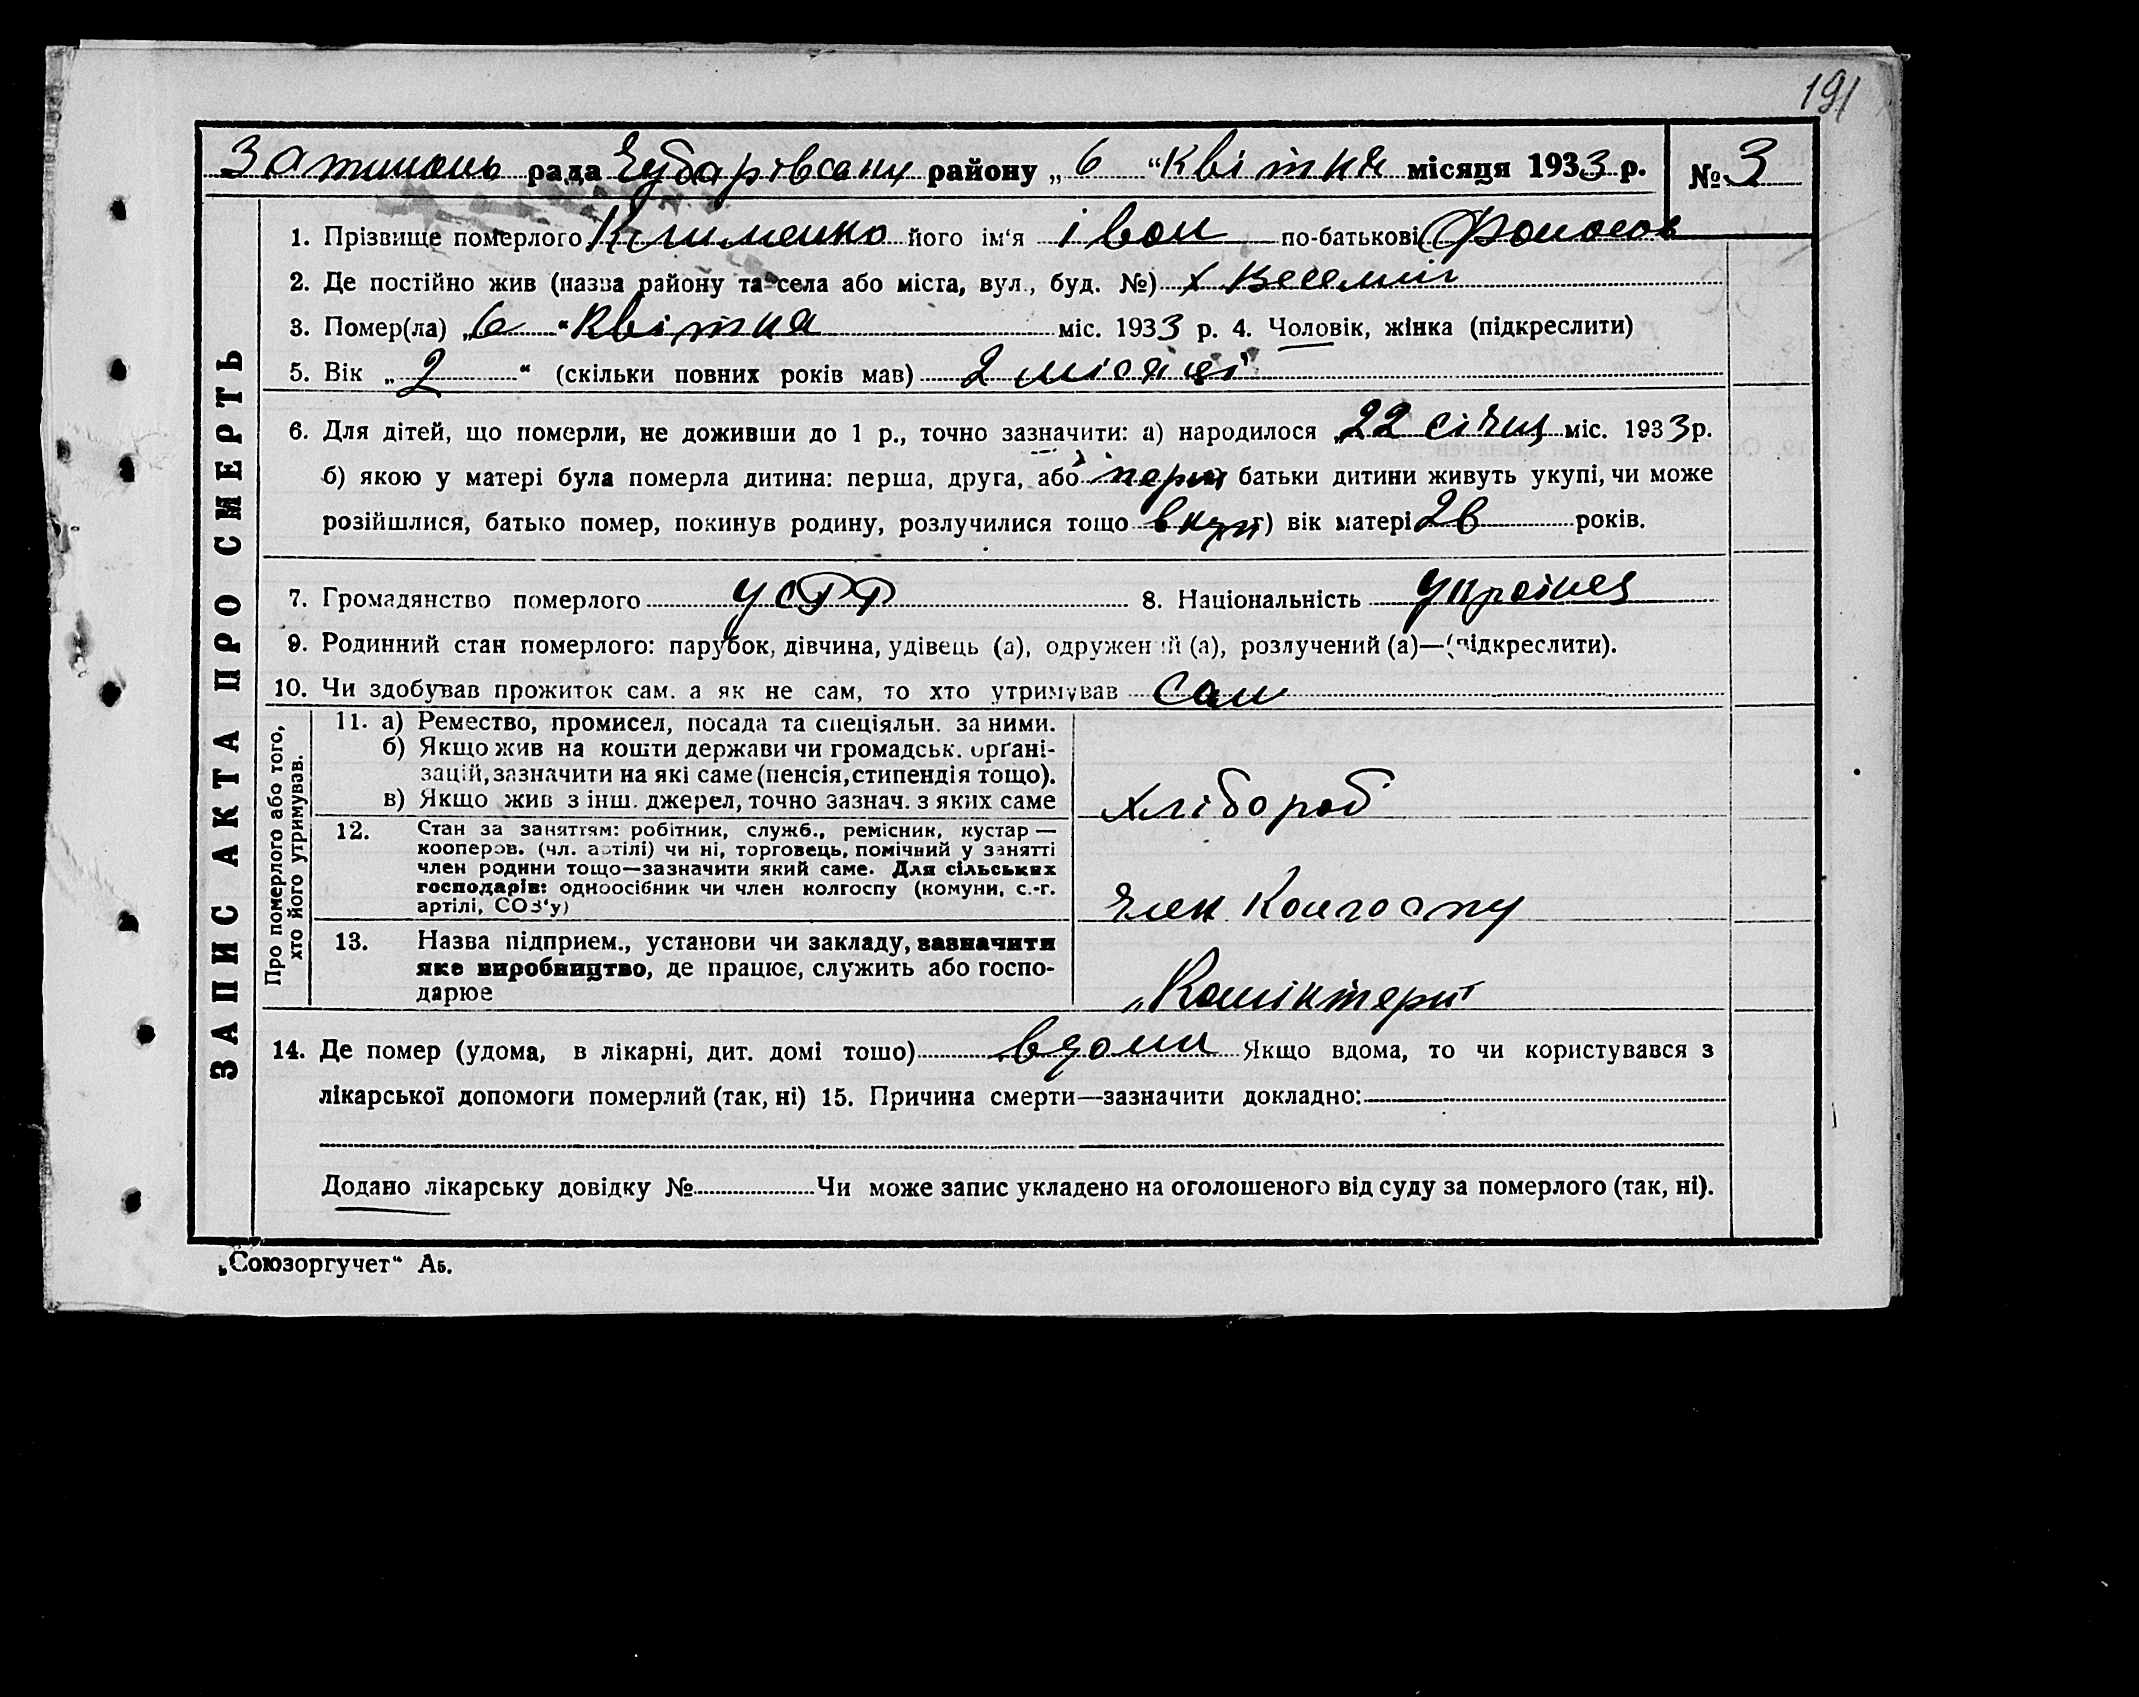 191
рада Чубарівсану району „ 6 “ Квітня місяця 1933 р. № 3
ЗАПИС АКТА ПРО СМЕРТЬ
1. Прізвище померлого Клименко його ім‘я Іван по-батькові Фанасов
2. Де постійно жив (назва району та села або міста, вул., буд. №) х Веселий
3. Помер(ла) „ 6 “ Квітня міс. 1933 р. 4. Чоловік, жінка (підкреслити)
5. Вік „ 2 “ (скільки повних років мав) 2 місяці
6. Для дітей, що померли, не доживши до 1 р., точно зазначити: а) народилося „22 січня міс. 1933 р.
б) якою у матері була померла дитина: перша, друга, або перш батьки дитини живуть укупі, чи може
розійшлися, батько помер, покинув родину, розлучилися тощо вкупі г) вік матері років.
7. Громадянство померлого УСРР 8. Національність Українец
9. Родинний стан померлого: парубок, дівчина, удівець (а), одружений (а), розлучений (а)—(підкреслити).
10. Чи здобував прожиток сам. а як не сам, то хто утримував Сам
Про померлого або того, хто його утримував.
11. а) Ремество, промисел, посада та спеціяльн. за ними.
б) Якщо жив на кошти держави чи громадськ. орґані-
зацій, зазначити на які саме (пенсія, стипендія тощо).
в) Якщо жив з інш. джерел, точно зазнач. з яких саме Хлібороб
12. Стан за заняттям: робітник, служб., ремісник, кустар —
кооперов. (чл. артілі) чи ні, торговець, помічний у занятті
член родини тощо—зазначити який саме. Для сільських
господарів: одноосібник чи член колгоспу (комуни, с.-г. Член Колгоспу
артілі, СОЗ‘у)
13. Назва підприєм., установи чи закладу, зазначити
яке виробництво, де працює, служить або госпо-
дарює „Комінтерн“
14. Де помер (удома, в лікарні, дит. домі тошо) вдоми Якщо вдома, то чи користувався з
лікарської допомоги померлий (так, ні) 15. Причина смерти—зазначити докладно:
Додано лікарську довідку № Чи може запис укладено на оголошеного від суду за померлого (так, ні).
„Союзоргучет“ А5.